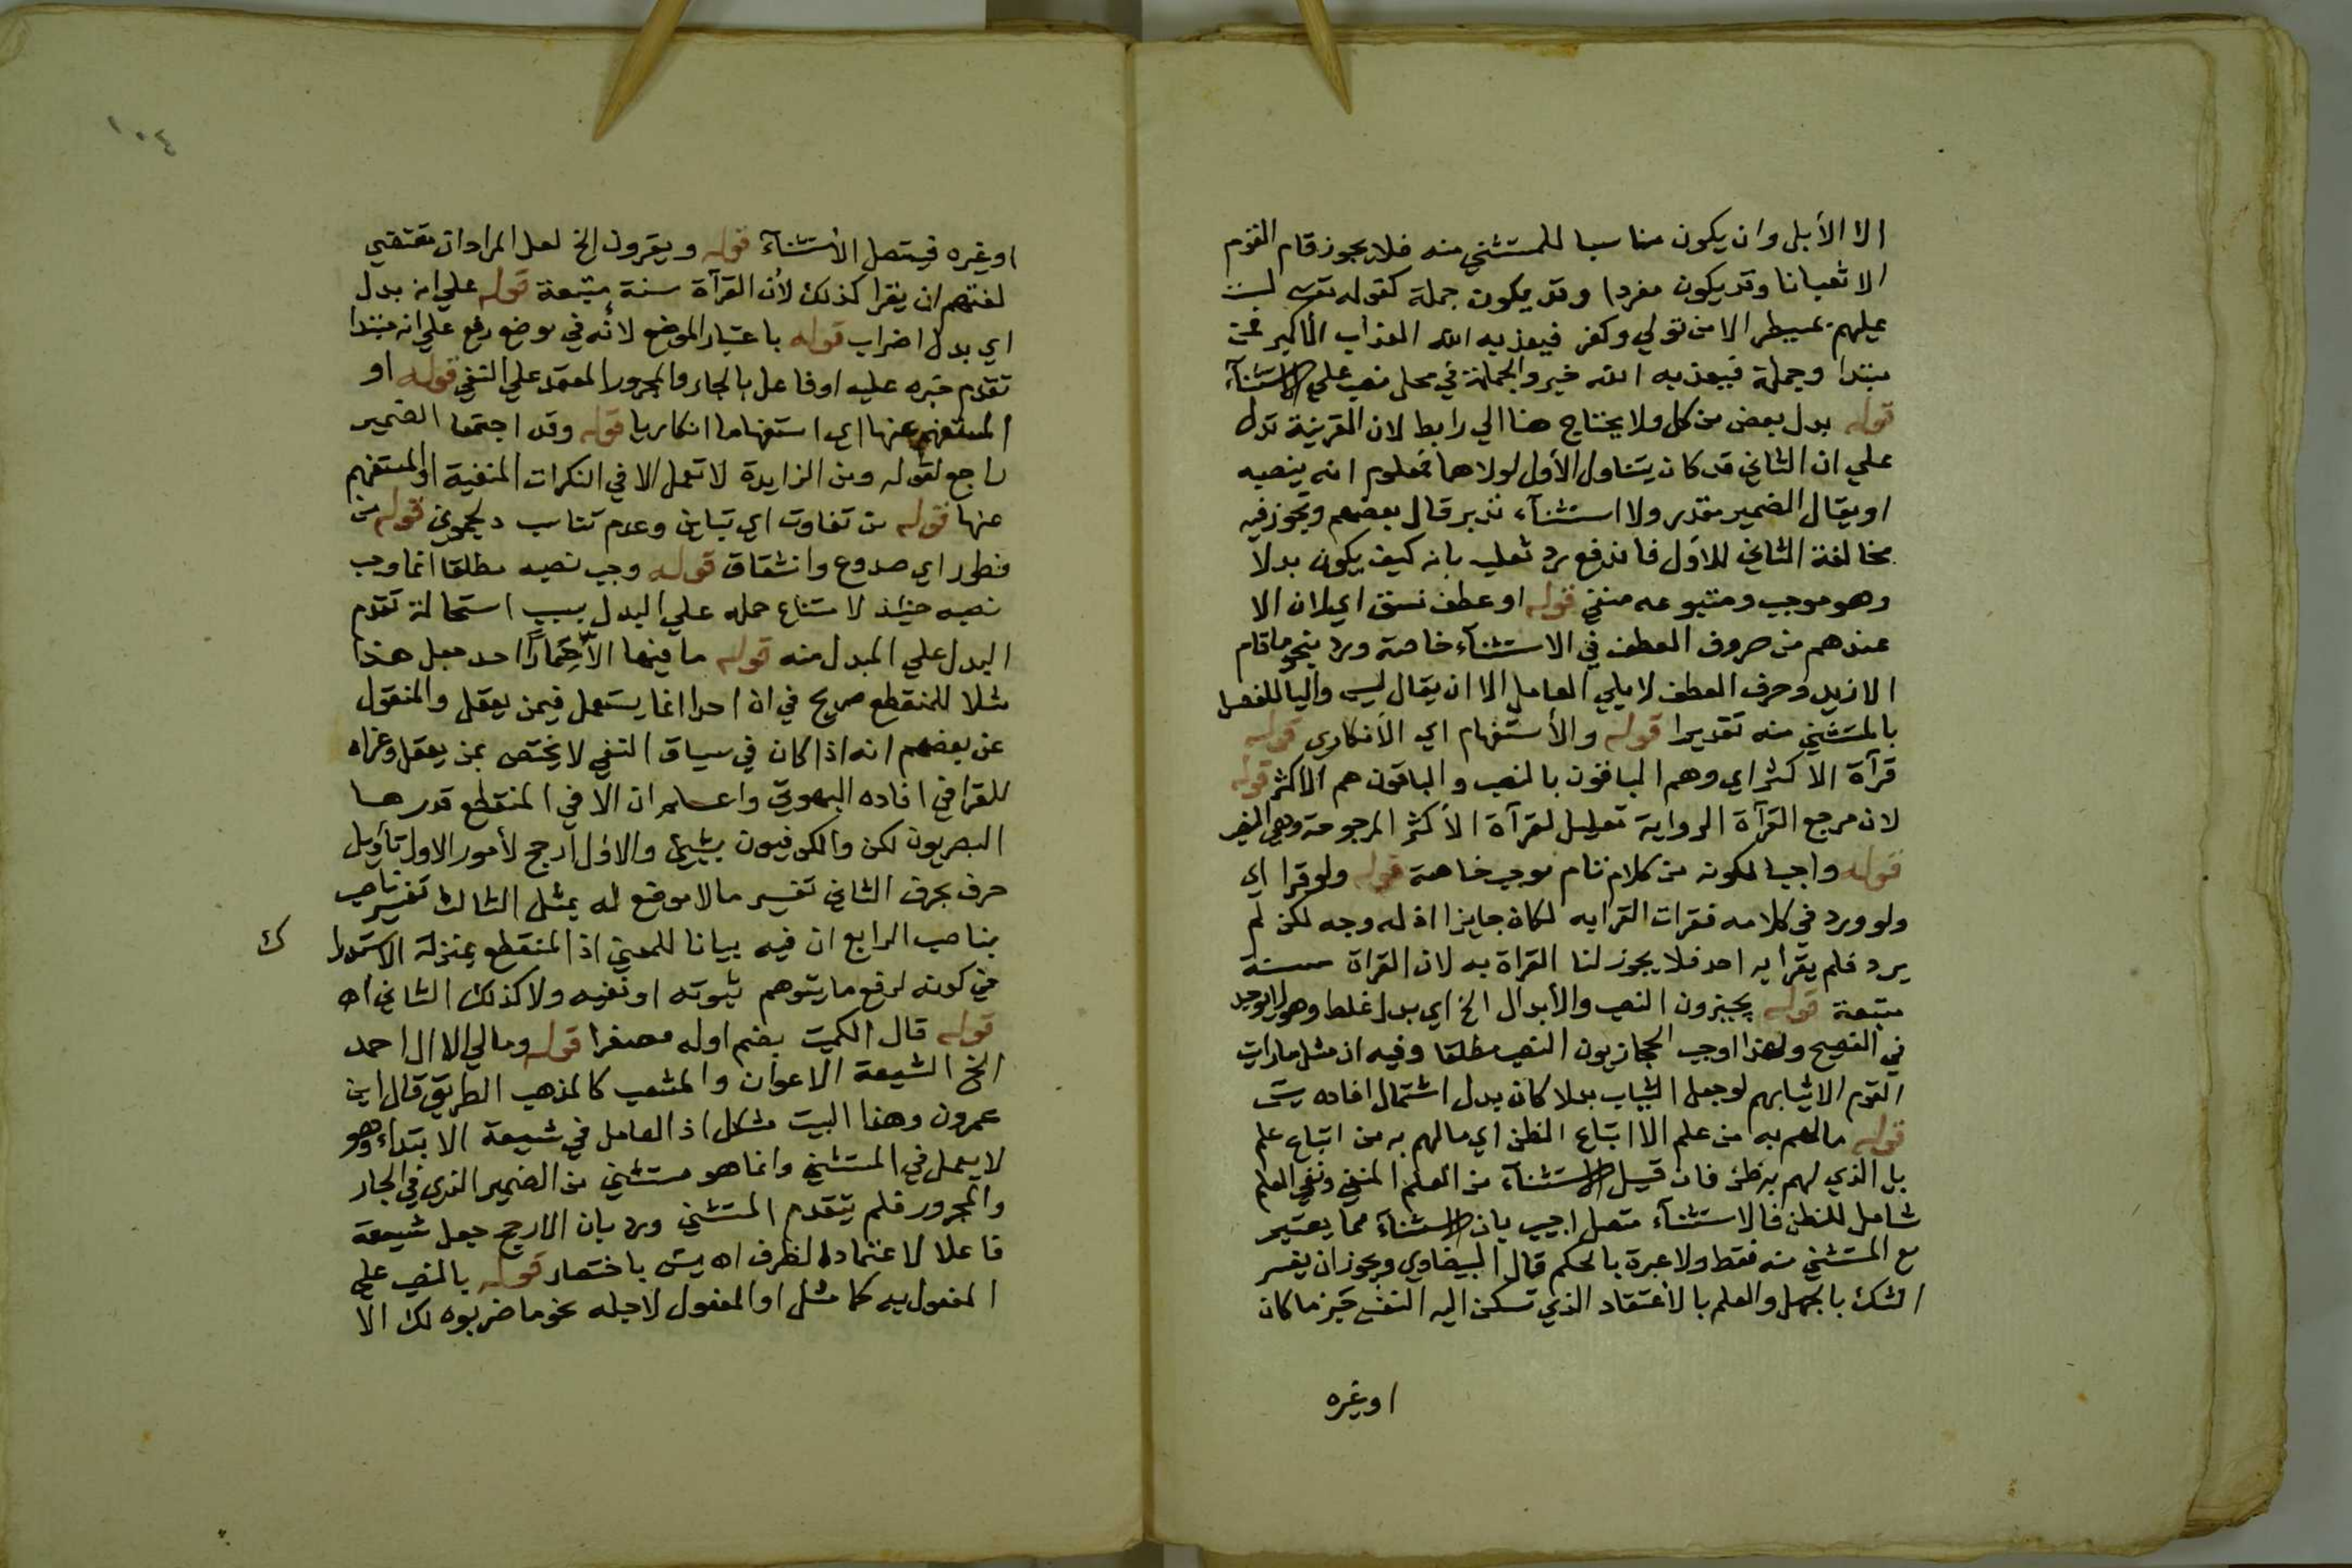 الا الأبل وان يكون مناسبا للمستثني منه فلا يجوز قام القوم
الا ثعبانا وقد يكون مفردا وقد يكون جملة كقوله تعـ لست
عليهم بمسيطر الا من تولي وكفر فيعذبه الله العذاب الأكبر فمن
مبتدا وجملة فيعذبه الله خبر والجملة في محل نصب علي الاستثنآء
قوله بدل بعض من كل ولا يحتاج هنا الي رابط لان القرينة تدل
علي ان الثاني قد كان يتناول الأول لولاها فمعلوم انه ينصبه
او يقال الضمير مقدر ولا استثنآء تدبر قال بعضهم ويجوز فيه
مخالفة الثاني للأول فاندفع رد ثعلب بانه كيف يكون بدلا
وهو موجب ومتبوعه منفي قوله او عطف نسق اي لان الا
عندهم من حروف العطف في الاستثنآء خاصة ورد بنحو ما قام
الا زيد وحرف العطف لا يلي العامل الا ان يقال ليس واليا للفصل
بالمستثني منه تقديرا قوله والأستفهام اي الأنكاري قوله
قرآة الأكثر اي وهم الباقون بالنصب والباقون هم الأكثر قوله
لان مرجع القرآة الرواية تعليل لقرآة الأكثر المرجوحة وهي النصب
قوله واجبا لكونه من كلام تام موجب خاصة قوله ولو قرا اي
ولو ورد في كلامه فقرات القرا به لكان جايزا اذ له وجه لكن لم
يرد فلم يقرا به احد فلا يجوز لنا القراة به لان القراة سنة
متبعة قوله يجيزون النصب والأبدال الخ اي بدل غلط وهو لا يوجد
في الفصيح ولهذا اوجب الحجازيون النصب مطلقا وفيه ان مثل ما رايت
القوم الا ثيابهم لو جعل الثياب بدلا كان بدل اشتمال افاده يس
قوله ما لهم به من علم الا اتباع الظن اي ما لهم به من اتباع علم
بل الذي لهم به ظن فان قيل الاستثنآء من العلم المنفي ونفي العلم
شامل للظن فالاستثنآء متصل اجيب بان الاستثنآء مما يعتبر
مع المستثني منه فقط ولا عبرة بالحكم قال البيضاوي ويجوز ان يفسر
الشك بالجهل والعلم بالأعتقاد الذي تسكن اليه النفس جزما كان
او غيره
١٠٤
او غيره فيتصل الأستثنآء قوله ويقرون الخ لعل المراد ان تقتضي
لغتهم ان يقرا كذلك لأن القرآة سنة متبعة قوله علي انه بدل
اي بدل اضراب قوله باعتبار الموضع لأنه في موضع رفع علي انه مبتدا
تقدم خبره عليه او فاعل بالجار والمجرور المعتمد علي النفي قوله او
المستفهم عنها اي استفهاما انكاريا قوله وقد اجتمعا الضمير
راجع لقوله ومن الزايدة لا تعمل الا في النكرات المنفية او المستفهم
عنها قوله من تفاوت اي تباين وعدم تناسب دلجموني قوله من
فطور اي صدوع وانشقاق قوله وجب نصبه مطلقا انما وجب
نصبه حينئذ لامتناع حمله علي البدل بسبب استحالة تقدم
البدل علي المبدل منه قوله ما فيها الا حمارا احد جعل هذا
مثلا للمنقطع صريح في ان احدا انما يستعمل فيمن يعقل والمنقول
عن بعضهم انه اذا كان في سياق النفي لا يختص بمن يعقل وعزاه
للقرافي افاده البهوتي واعلم ان الا في المنقطع قدرها
البصريون لكن والكوفيون بشيئ والاول ارجح لأمور الاول تأويل
حرف بحرف الثاني تفسير ما لا موضع له بمثل الثالث تفسير ناصب
بناصب الرابع ان فيه بيانا للمعني اذ المنقطع بمنزلة الاستدرا
ك
في كونه لرفع ما يتوهم ثبوته او نفيه ولا كذلك الثاني اه
قوله قال الكميت بضم اوله مصغرا قوله ومالي الا ال احمد
الخ الشيعة الاعوان والمشعب كالمذهب الطريق قال ابن
عمرون وهذا البيت مشكل اذ العامل في شيعة الابتداء وهو
لا يعمل في المستثني وانما هو مستثني من الضمير الذي في الجار
والمجرور فلم يتقدم المستثني ورد بان الارجح جعل شيعة
فاعلا لاعتماده الظرف اه يس باختصار قوله بالنصب علي
المفعول به كما مثل او المفعول لاجله نحو ما ضربوه لك الا